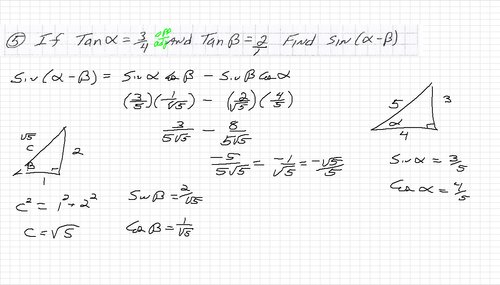 ⑤ If Tan α = 3/4 opp/adj And Tan β = 2/1 Find sin(α-β)
Sin(α-β) = Sin α Cos β - Sin β Cos α
(3/5)(1/√5) - (2/√5)(4/5)
3/5√5 - 8/5√5
-5/5√5 = -1/√5 = -√5/5
5
3
α
4
Sin α = 3/5
Cos α = 4/5
√5
c
2
B
1
c² = 1² + 2²
c = √5
Sin β = 2/√5
Cos β = 1/√5